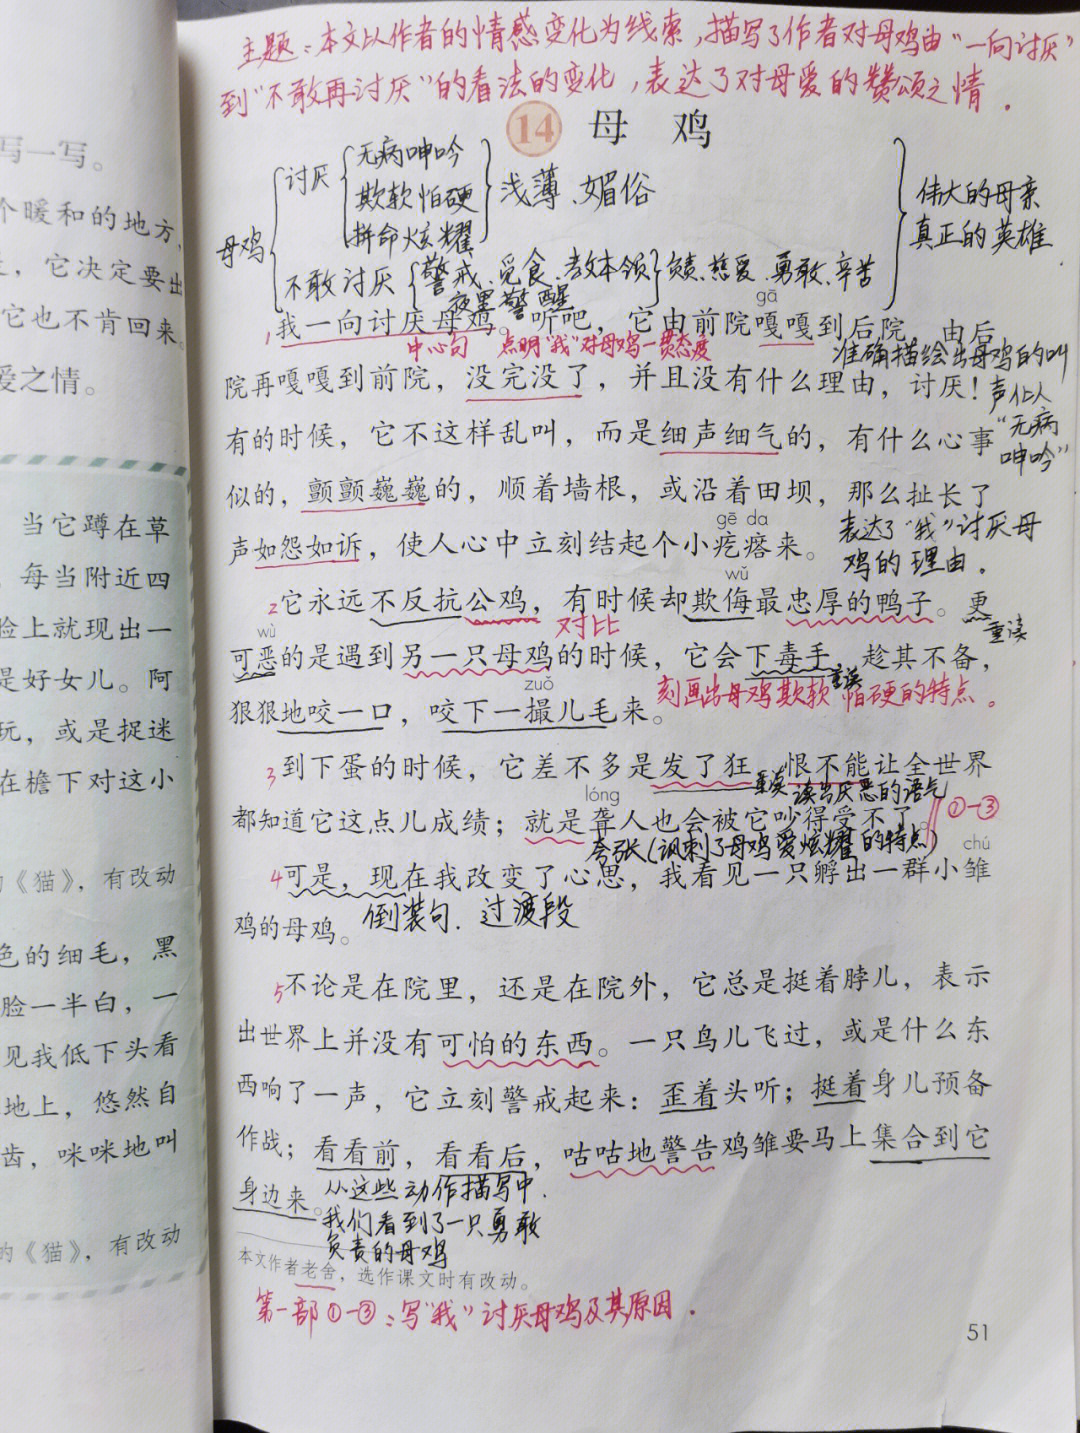 写一写。
个暖和的地方,
它决定要出
它也不肯回来。
爱之情。
当它蹲在草
每当附近四
脸上就现出一
是好女儿。阿
玩，或是捉迷
在檐下对这小
的《猫》，有改动
色的细毛，黑
脸一半白，一
见我低下头看
地上，悠然自
齿，咪咪地叫
的《猫》，有改动
主题：本文以作者的情感变化为线索，描写了作者对母鸡由"一向讨厌"
到"不敢再讨厌"的看法的变化，表达了对母爱的赞颂之情．
14 母 鸡
母鸡
讨厌
无病呻吟
欺软怕硬
拼命炫耀
浅薄、媚俗
不敢讨厌
警戒、觅食、教本领
夜里警醒
负责、慈爱、勇敢、辛苦
伟大的母亲
真正的英雄
gā
1我一向讨厌母鸡。听吧，它由前院嘎嘎到后院，由后
中心句 点明"我"对母鸡一贯态度
准确描绘出母鸡的叫
声似人
"无病
呻吟"
院再嘎嘎到前院，没完没了，并且没有什么理由，讨厌！
有的时候，它不这样乱叫，而是细声细气的，有什么心事
似的，颤颤巍巍的，顺着墙根，或沿着田坝，那么扯长了
gē da
声如怨如诉，使人心中立刻结起个小疙瘩来。
表达了"我"讨厌母
鸡的理由．
wǔ
2它永远不反抗公鸡，有时候却欺侮最忠厚的鸭子。更
对比
重读
wù
可恶的是遇到另一只母鸡的时候，它会下毒手，趁其不备，
重读
刻画出母鸡欺软怕硬的特点。
zuǒ
狠狠地咬一口，咬下一撮儿毛来。
3到下蛋的时候，它差不多是发了狂，恨不能让全世界
重读 读出厌恶的语气
lóng
都知道它这点儿成绩；就是聋人也会被它吵得受不了。
①—③
夸张(讽刺了母鸡爱炫耀的特点)
chú
4可是，现在我改变了心思，我看见一只孵出一群小雏
鸡的母鸡。
倒装句．过渡段
5不论是在院里，还是在院外，它总是挺着脖儿，表示
出世界上并没有可怕的东西。一只鸟儿飞过，或是什么东
西响了一声，它立刻警戒起来：歪着头听；挺着身儿预备
作战；看看前，看看后，咕咕地警告鸡雏要马上集合到它
身边来。
从这些动作描写中．
我们看到了一只勇敢
负责的母鸡
本文作者老舍，选作课文时有改动。
第一部①—③：写"我"讨厌母鸡及其原因．
51